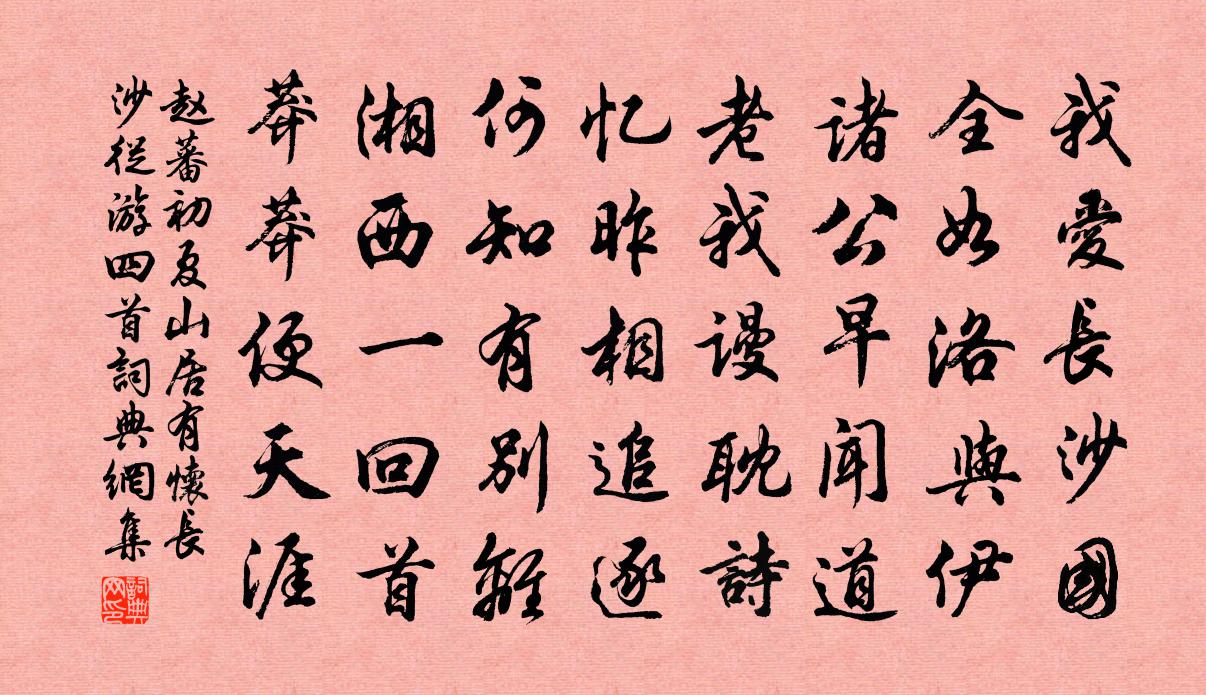 我愛長沙國
全如洛與伊
諸公早聞道
老我謾耽詩
忆昨相追逐
何知有別離
湘西一回首
莽莽便天涯
赵蕃初夏山居有懷長
沙從游四首詞典網集
詞典网印